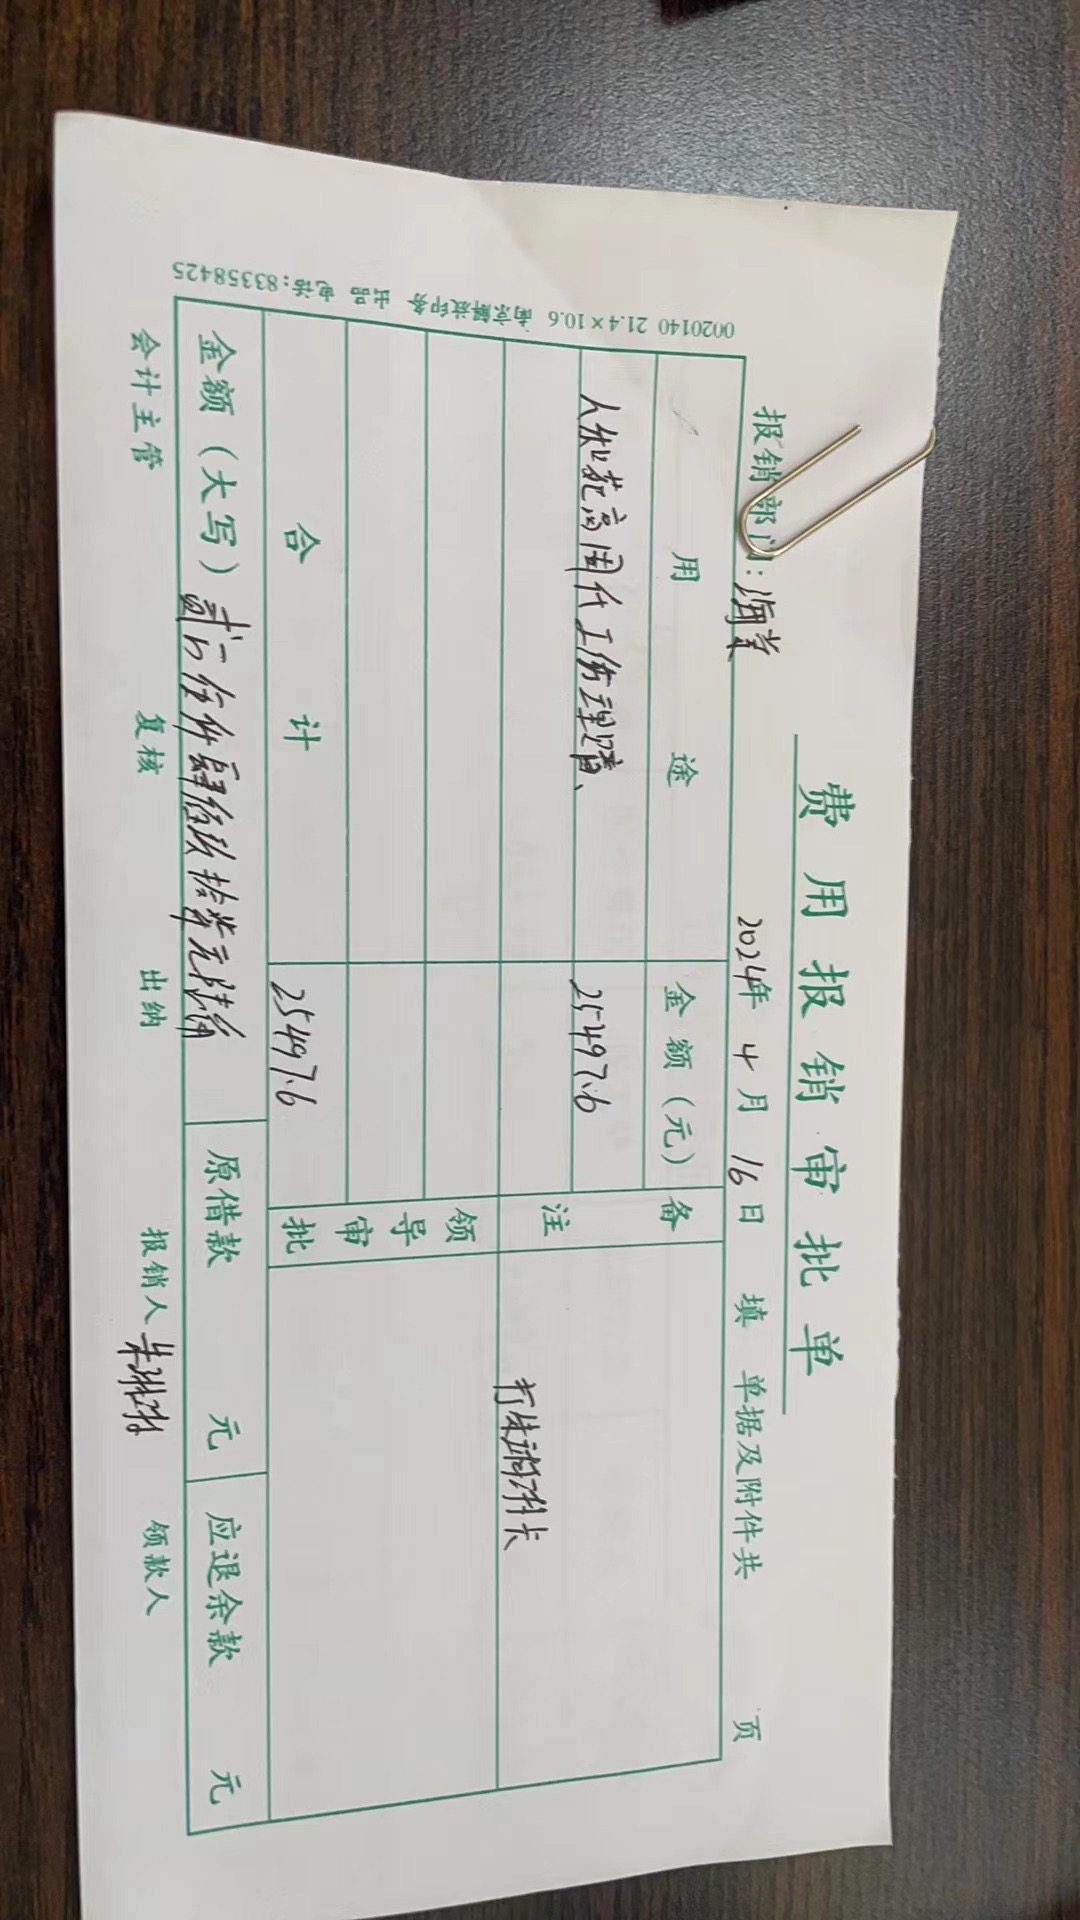 费用报销审批单
报销部门：海棠 2024年 4月 16日 填 单据及附件共 页
用途 金额（元） 备注
人才花高国仟工伤理赔、 25497.6
打朱瑞洲卡
领导审批
合计 25497.6
金额（大写）贰万伍仟肆佰玖拾柒元陆角 原借款 元 应退余款 元
会计主管 复核 出纳 报销人 领款人
0020140 21.4×10.6 南京解放印务 出品 电话：83358425